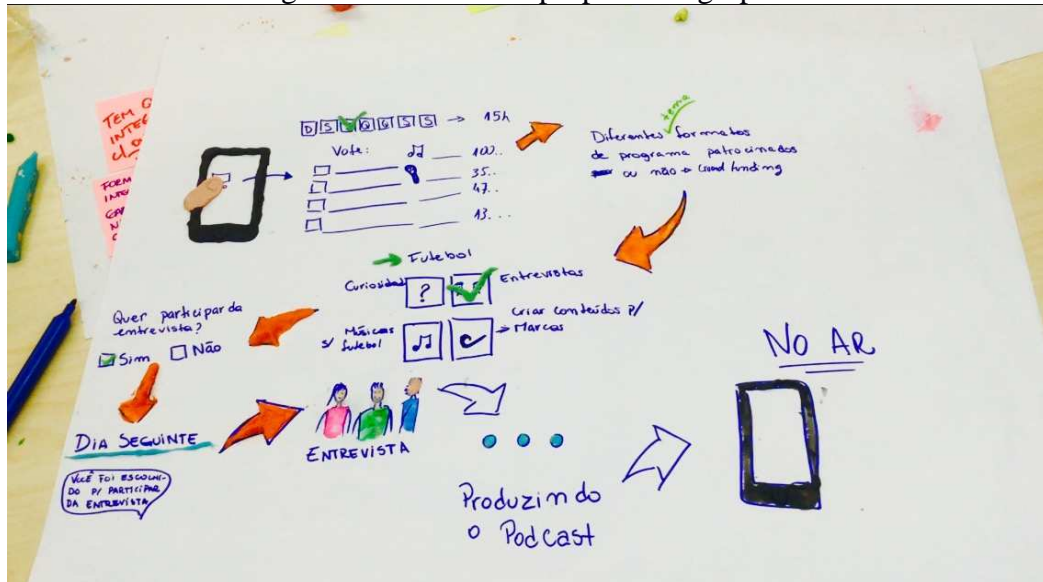 TEM
INTE
FORM
INTE
D S T Q Q S S → 15h
Vote: 100..
35..
47..
13...
tema
Diferentes formatos
de programa patrocinados
ou não → Crowd funding
→ Futebol
Curiosidad
?
Entrevistas
Músicas
s/ futebol
criar conteúdos p/
→ Marcas
Quer participar da
entrevista?
Sim Não
DIA SEGUINTE
VOCÊ FOI ESCOLHI-
DO P/ PARTICIPAR
DA ENTREVISTA
ENTREVISTA
Produzindo
o Podcast
NO AR